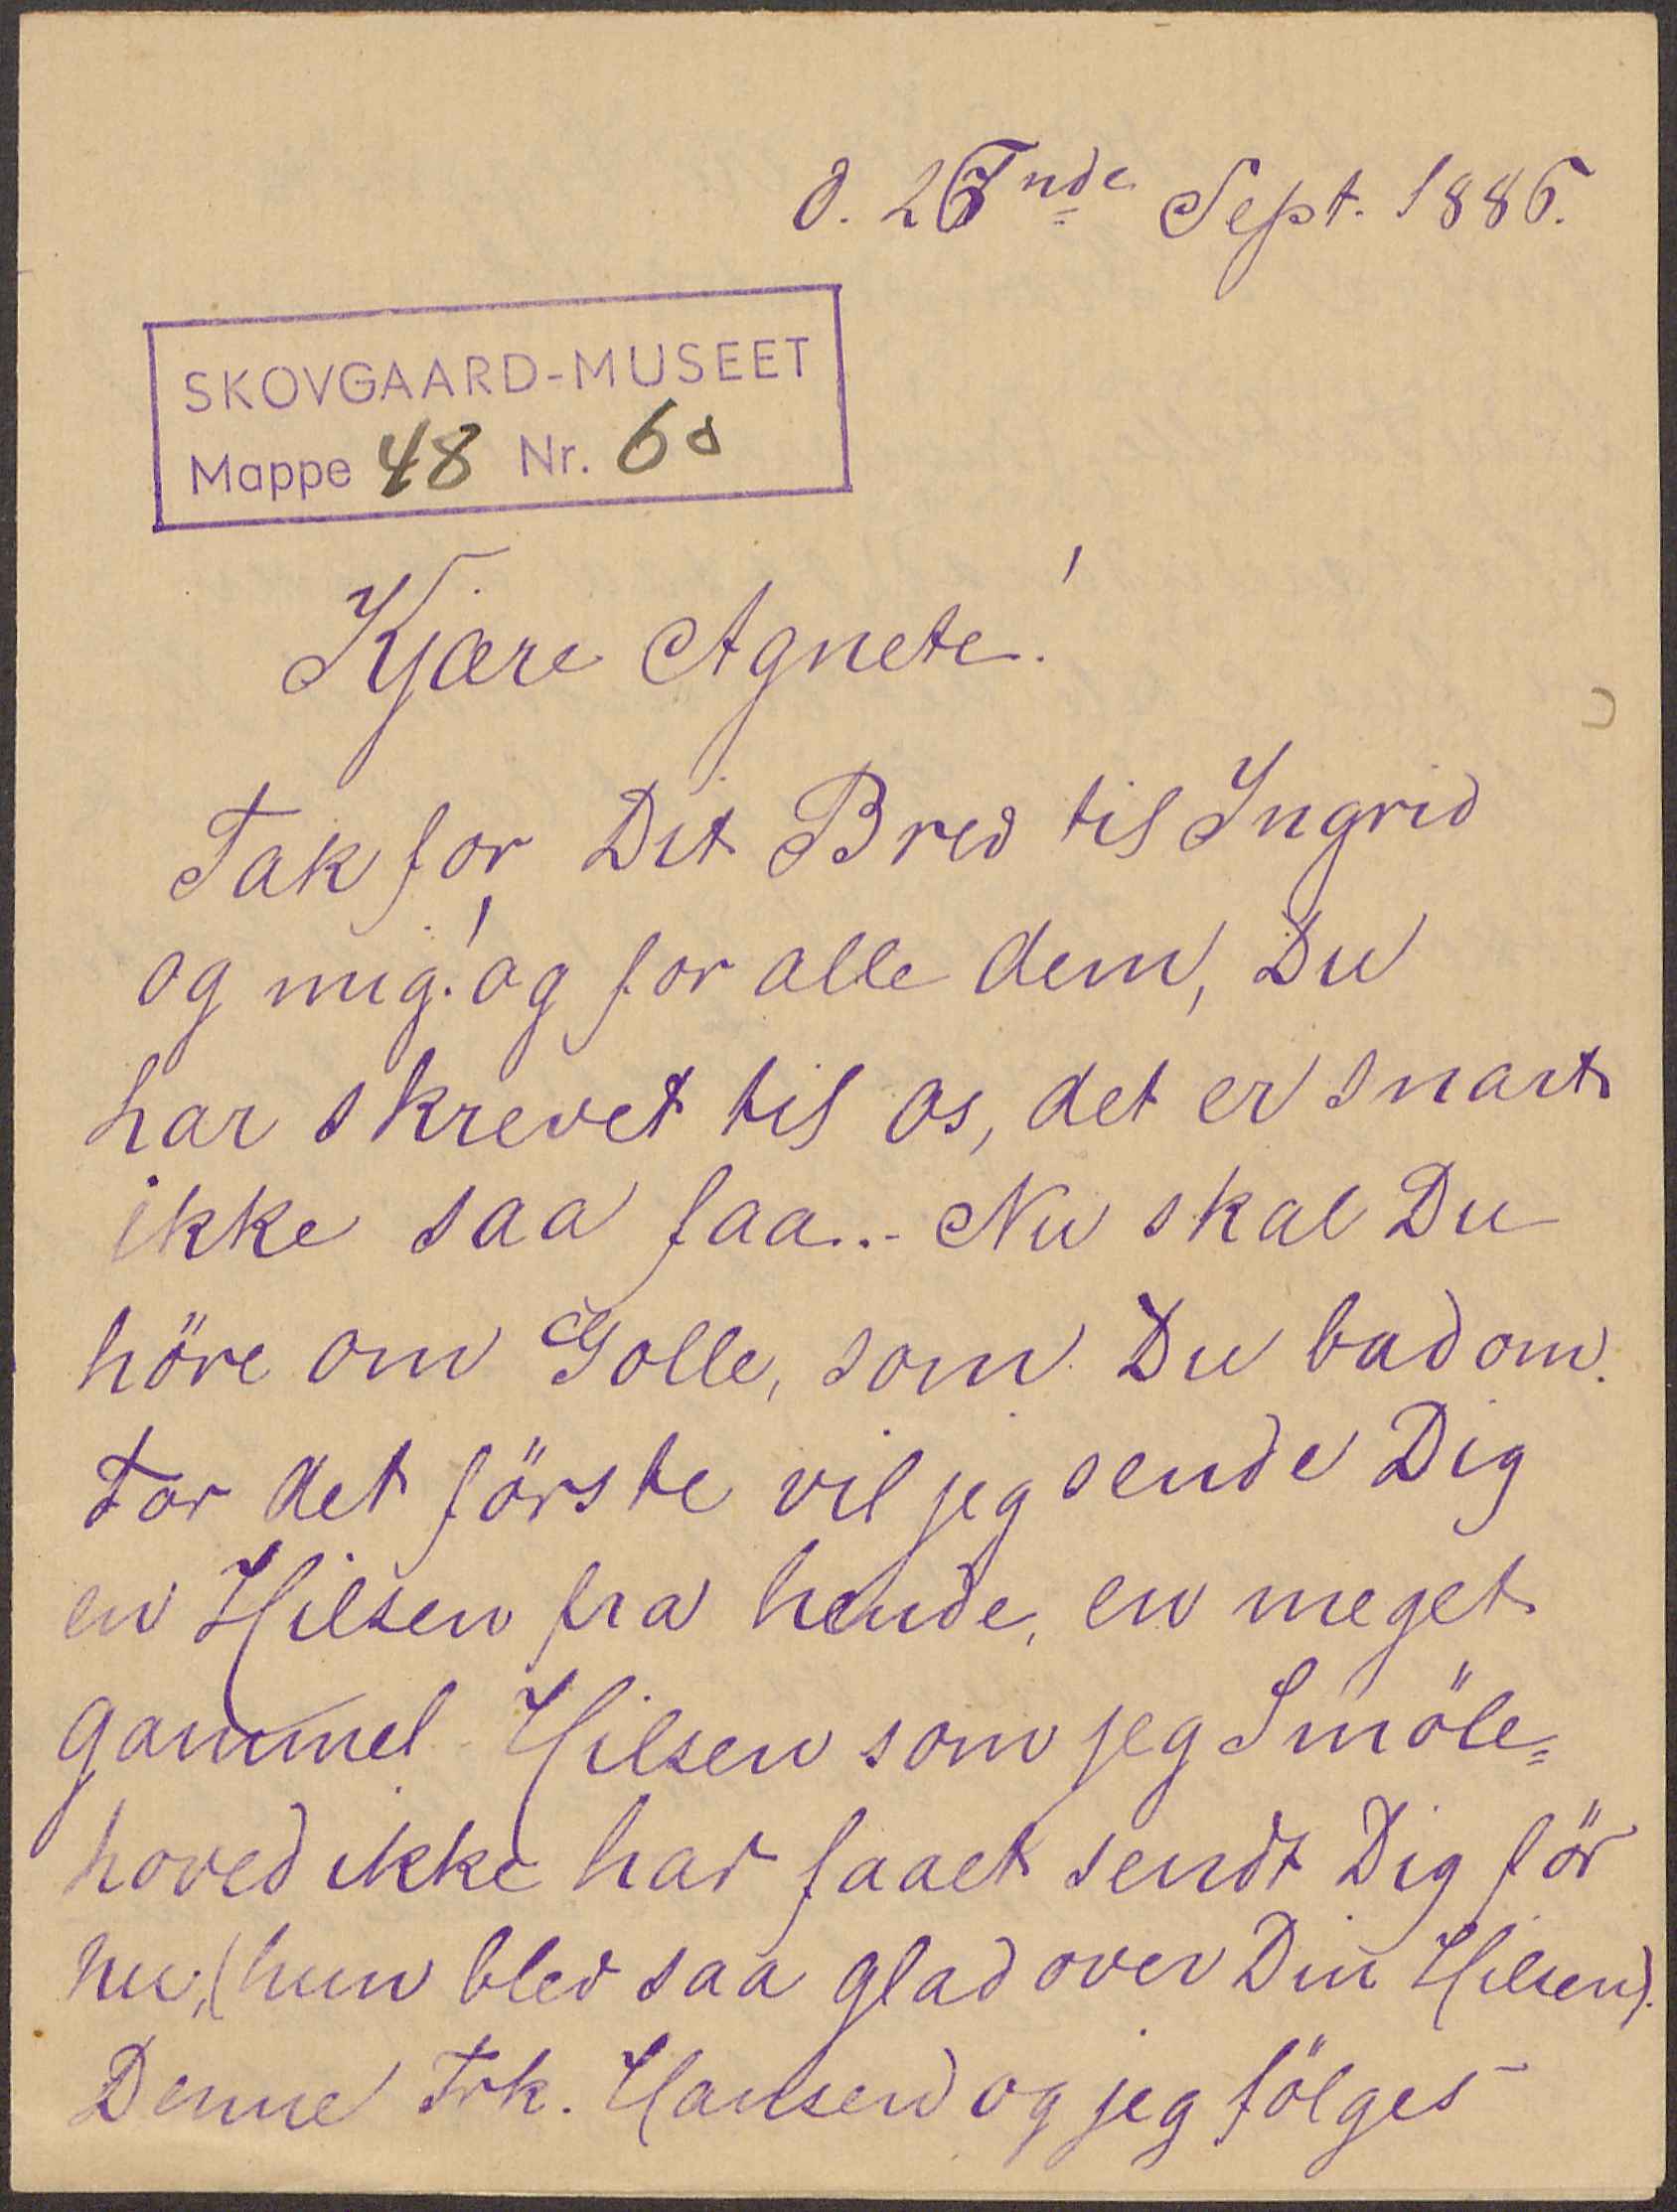 d. 26nde Sept. 1886.
SKOVGAARD-MUSEET
Mappe 48 Nr. 60
Kjære Agnete!
Tak for Dit Brev til Ingrid
og mig! og for alle dem, Du
har skrevet til os, det er snart
ikke saa faa.. - Nu skal Du
höre om Golle, som Du bad om.
For det förste vil jeg sende Dig
en Hilsen fra hende, en meget
gammel Hilsen som jeg Smöle=
hoved ikke har faaet sendt Dig för
nu, (hun blev saa glad over Din Hilsen).
Denne Frk. Hansen og jeg fölges